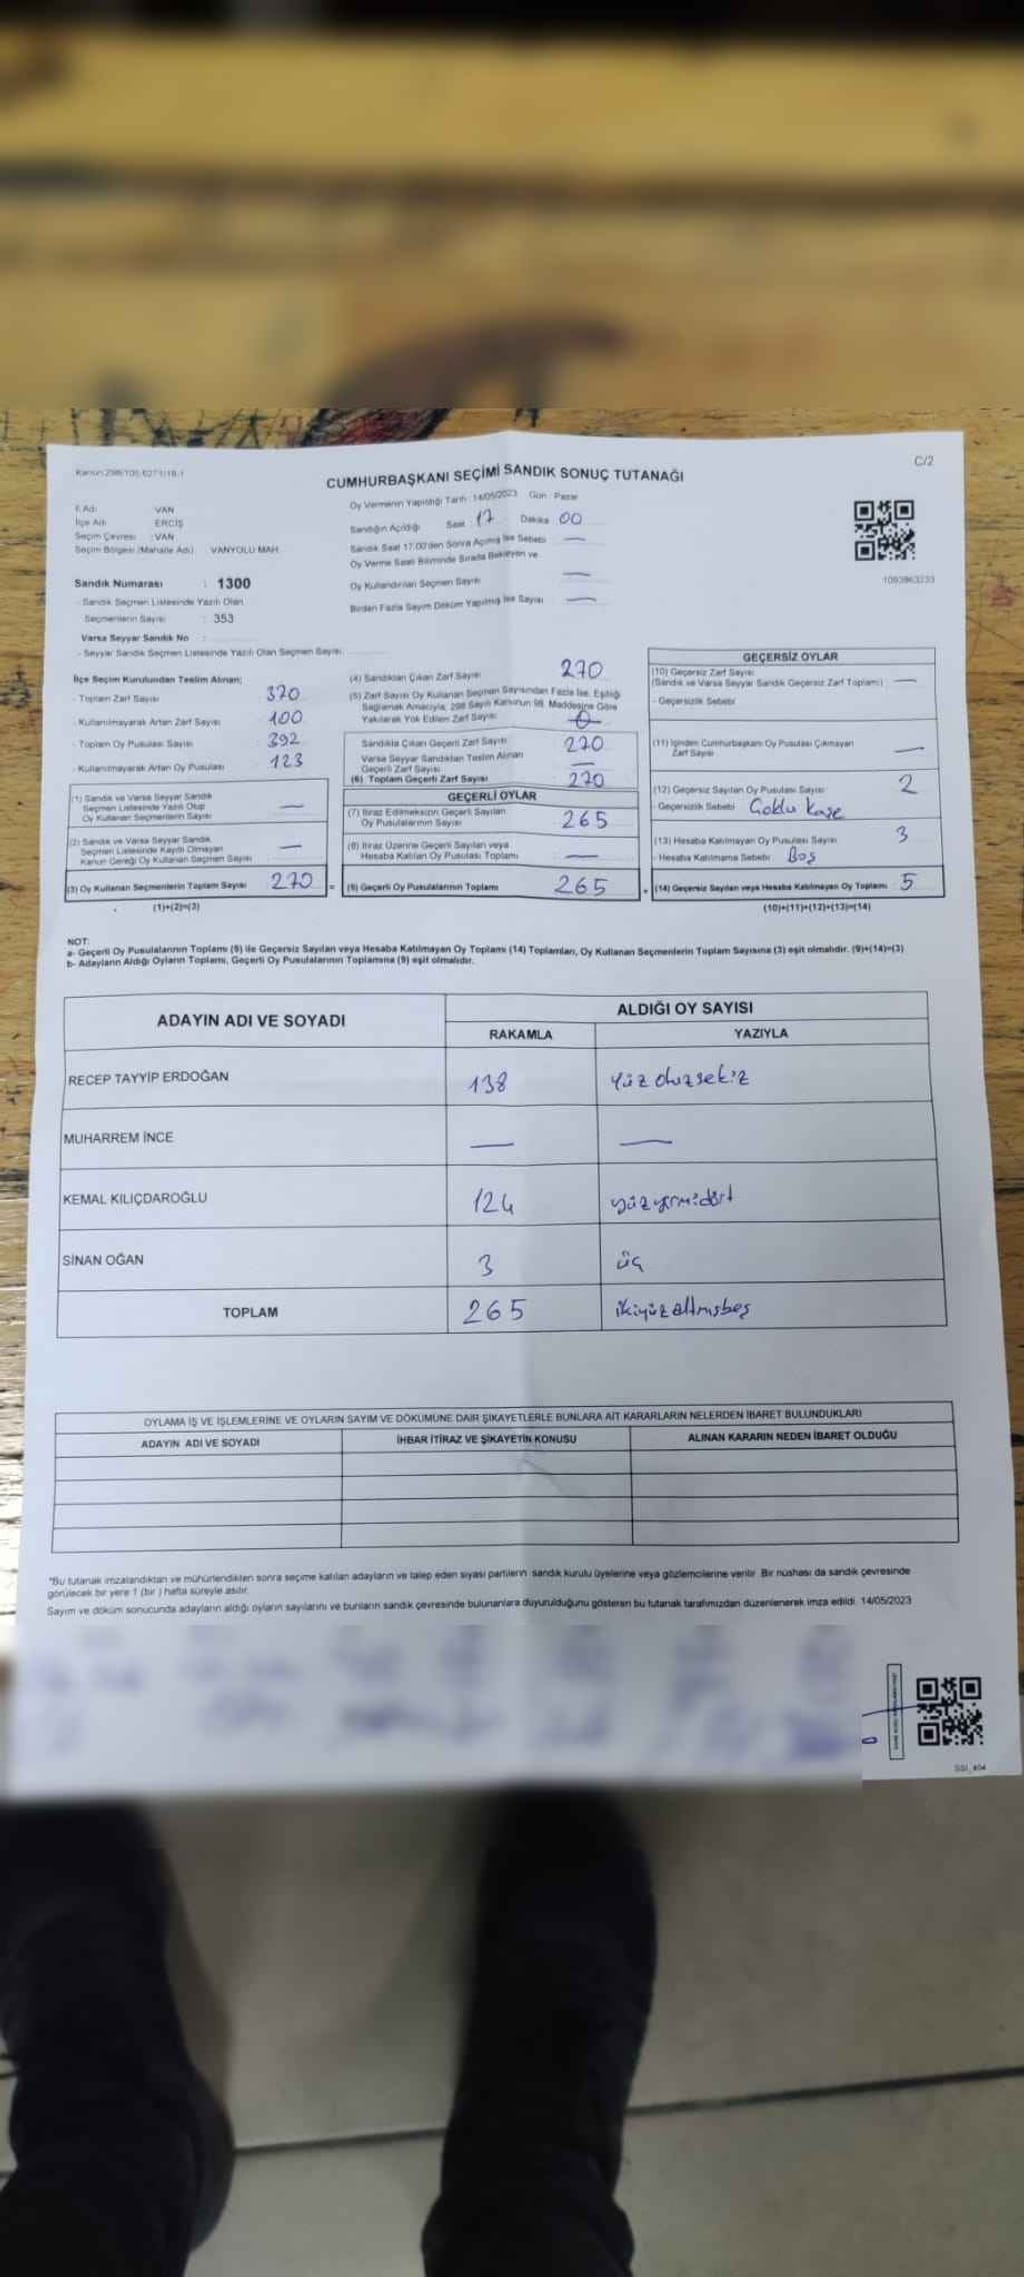 C/2
CUMHURBAŞKANI SEÇİMİ SANDIK SONUÇ TUTANAĞI
İl Adı : VAN
İlçe Adı : ERCİŞ
Seçim Çevresi : VAN
Seçim Bölgesi (Mahalle Adı) : VANYOLU MAH.
Sandık Numarası : 1300
- Sandık Seçmen Listesinde Yazılı Olan
Seçmenlerin Sayısı : 353
Varsa Seyyar Sandık No :
- Seyyar Sandık Seçmen Listesinde Yazılı Olan Seçmen Sayısı:
Oy Vermenin Yapıldığı Tarih : 14/05/2023 Gün : Pazar
Sandığın Açıldığı Saat : 17 Dakika 00
Sandık Saat 17:00'den Sonra Açılmış İse Sebebi —
Oy Verme Saati Bitiminde Sırada Bekleyen ve
Oy Kullandırılan Seçmen Sayısı —
Birden Fazla Sayım Döküm Yapılmış İse Sayısı —
1093963233
İlçe Seçim Kurulundan Teslim Alınan;
- Toplam Zarf Sayısı 370
- Kullanılmayarak Artan Zarf Sayısı 100
- Toplam Oy Pusulası Sayısı 392
- Kullanılmayarak Artan Oy Pusulası 123
(1) Sandık ve Varsa Seyyar Sandık
Seçmen Listesinde Yazılı Olup
Oy Kullanan Seçmenlerin Sayısı —
(2) Sandık ve Varsa Seyyar Sandık
Seçmen Listesinde Kayıtlı Olmayan
Kanun Gereği Oy Kullanan Seçmen Sayısı —
(3) Oy Kullanan Seçmenlerin Toplam Sayısı 270
(1)+(2)=(3)
(4) Sandıktan Çıkan Zarf Sayısı 270
(5) Zarf Sayısı Oy Kullanan Seçmen Sayısından Fazla İse, Eşitliği
Sağlamak Amacıyla, 298 Sayılı Kanunun 98. Maddesine Göre
Yakılarak Yok Edilen Zarf Sayısı
Sandıkta Çıkan Geçerli Zarf Sayısı 270
Varsa Seyyar Sandıktan Teslim Alınan
Geçerli Zarf Sayısı —
(6) Toplam Geçerli Zarf Sayısı 270
GEÇERLİ OYLAR
(7) İtiraz Edilmeksizin Geçerli Sayılan
Oy Pusulalarının Sayısı 265
(8) İtiraz Üzerine Geçerli Sayılan veya
Hesaba Katılan Oy Pusulası Toplamı —
(9) Geçerli Oy Pusulalarının Toplamı 265
GEÇERSİZ OYLAR
(10) Geçersiz Zarf Sayısı
(Sandık ve Varsa Seyyar Sandık Geçersiz Zarf Toplamı) —
- Geçersizlik Sebebi
(11) İçinden Cumhurbaşkanı Oy Pusulası Çıkmayan
Zarf Sayısı —
(12) Geçersiz Sayılan Oy Pusulası Sayısı 2
- Geçersizlik Sebebi Çoklu Kaşe
(13) Hesaba Katılmayan Oy Pusulası Sayısı 3
- Hesaba Katılmama Sebebi Boş
(14) Geçersiz Sayılan veya Hesaba Katılmayan Oy Toplamı 5
(10)+(11)+(12)+(13)=(14)
NOT:
a- Geçerli Oy Pusulalarının Toplamı (9) ile Geçersiz Sayılan veya Hesaba Katılmayan Oy Toplamı (14) Toplamları, Oy Kullanan Seçmenlerin Toplam Sayısına (3) eşit olmalıdır. (9)+(14)=(3)
b- Adayların Aldığı Oyların Toplamı, Geçerli Oy Pusulalarının Toplamına (9) eşit olmalıdır.
ADAYIN ADI VE SOYADI
ALDIĞI OY SAYISI
RAKAMLA YAZIYLA
RECEP TAYYİP ERDOĞAN 138 Yüz otuzsekiz
MUHARREM İNCE — —
KEMAL KILIÇDAROĞLU 124 yüzyirmidört
SİNAN OĞAN 3 üç
TOPLAM 265 ikiyüzaltmışbeş
OYLAMA İŞ VE İŞLEMLERİNE VE OYLARIN SAYIM VE DÖKÜMÜNE DAİR ŞİKAYETLERLE BUNLARA AİT KARARLARIN NELERDEN İBARET BULUNDUKLARI
ADAYIN ADI VE SOYADI İHBAR İTİRAZ VE ŞİKAYETİN KONUSU ALINAN KARARIN NEDEN İBARET OLDUĞU
*Bu tutanak imzalandıktan ve mühürlendikten sonra seçime katılan adayların ve talep eden siyasi partilerin sandık kurulu üyelerine veya gözlemcilerine verilir. Bir nüshası da sandık çevresinde
görülecek bir yere 1 (bir ) hafta süreyle asılır.
Sayım ve döküm sonucunda adayların aldığı oyların sayılarını ve bunların sandık çevresinde bulunanlara duyurulduğunu gösteren bu tutanak tarafımızdan düzenlenerek imza edildi. 14/05/2023